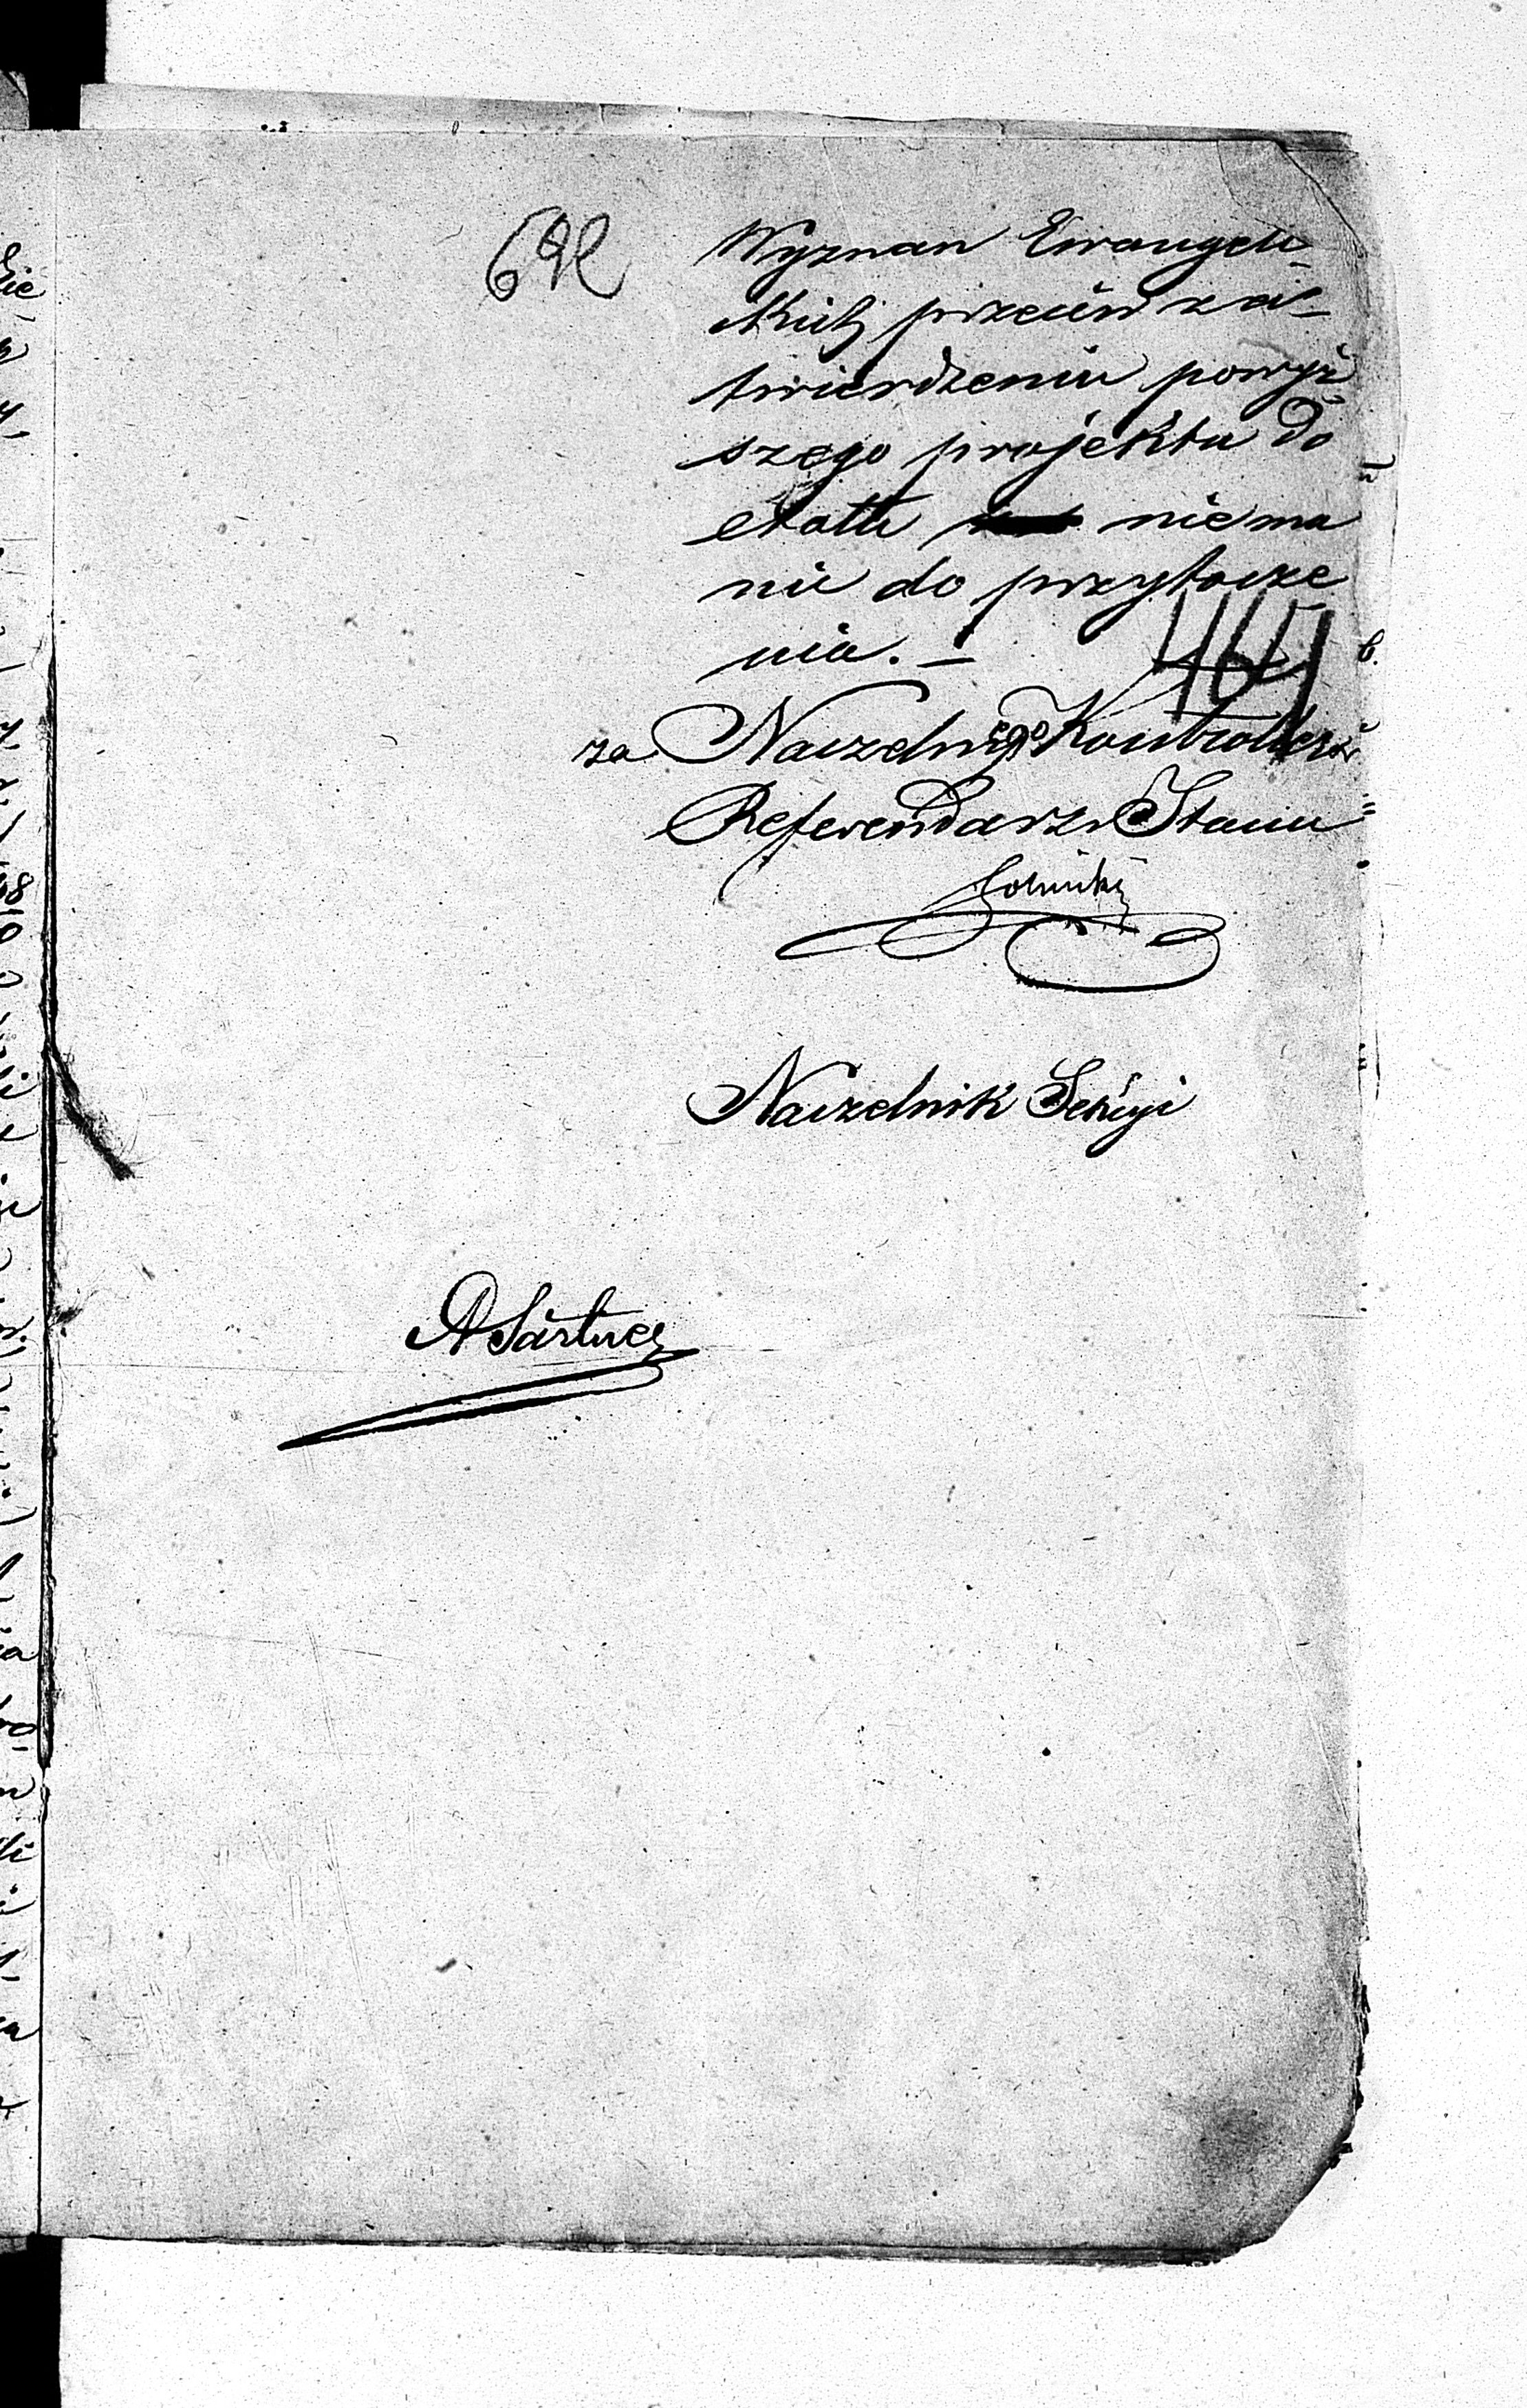 Wyznan Ewangeli-
ckich przeciw za-
twierdzeniu powyż-
szego projektu do
etatu niema
nic do przytocze
nia. —
464
za Naczelnego Kontrollera
Referendarz Stanu
Naczelnik Sekcyi